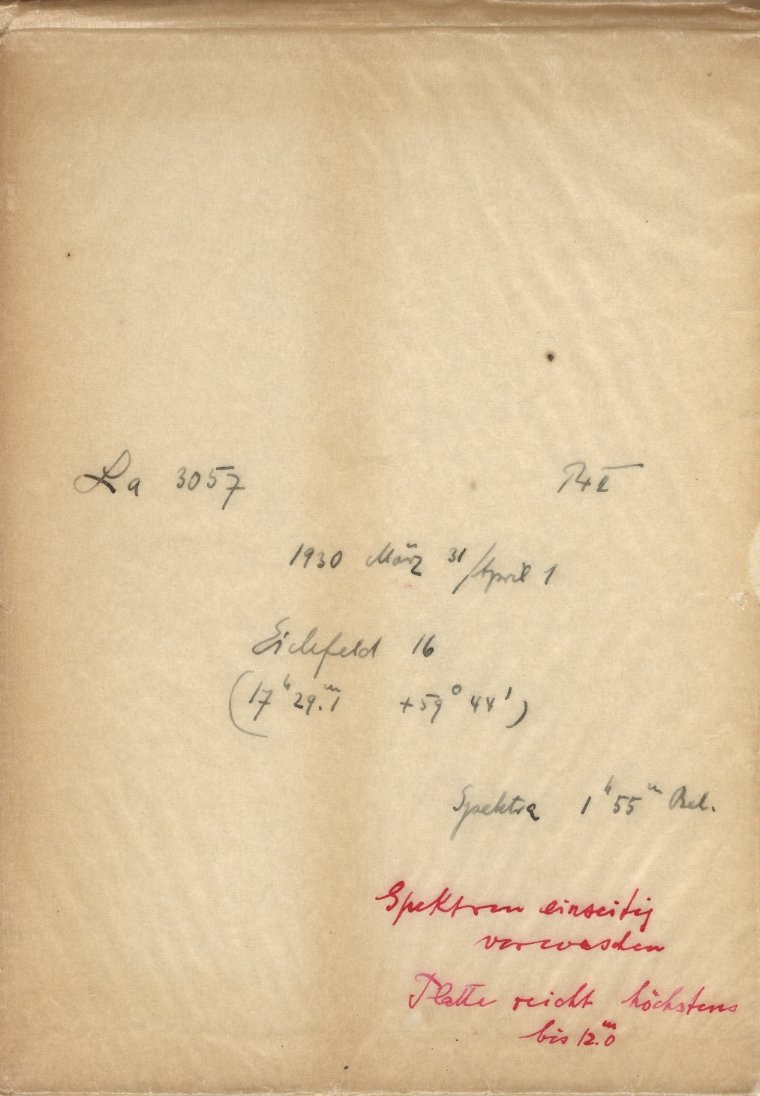 La 3057
1930 März 31/April 1
Eichfeld 16
(17ʰ 29.ᵐ1 +59° 44')
Spektra 1ʰ 55ᵐ Bel.
Spektren einseitig
verwaschen
Platte reicht höchstens
bis 12.ᵐ0